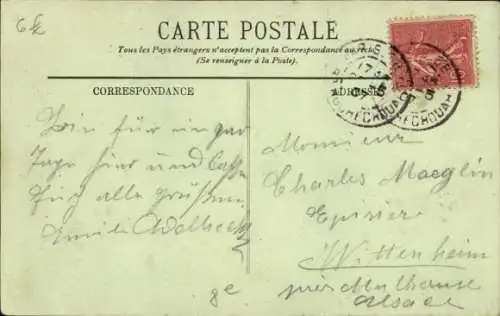 6 f
CARTE POSTALE
Tous les Pays étrangers n'acceptent pas la Correspondance au recto
(Se renseigner à la Poste).
CORRESPONDANCE
ADRESSE
PARIS
ROCHECHOUART
Bin für ein paar
Tage hier und lasse
Euch alle Grüßen
Emile
Monsieur
Charles Maeglin
Epicier
Wittenheim
près Mulhouse
Alsace
ge